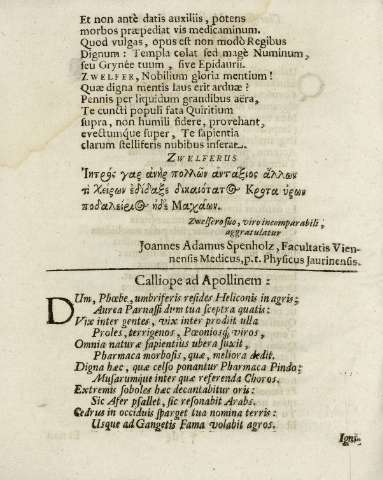 Et non antè datis auxiliis, potens
morbos præpediat vis medicaminum.
Quod vulgas, opus est non modò Regibus
Dignum: Templa colat sed magè Numinum,
seu Grynêe tuum, sive Epidauri.
ZWELFER, Nobilium gloria mentium!
Quæ digna mentis laus erit arduæ?
Pennis per liquidum grandibus aëra,
Te cuncti populi fata Quiritium
supra, non humili sidere, provehant,
evectumque super, Te sapientia
clarum stelliferis nubibus inserat.
ZWELFERUS
Ἰητρὸς γαρ ἀνὴρ πολλῶν ἀνταξιος ἄλλων
τὶ Χείρων ἐδίδαξε δικαιότατος Κενταύρων
ποδαλείριος ἠδε Μαχάων.
Zwelfero suo, viro incomparabili,
aggratulatur
Joannes Adamus Spenholz, Facultatis Vien-
nensis Medicus, p.t. Physicus Jaurinensis.
Calliope ad Apollinem:
DUm, Phœbe, umbriferis resides Heliconis in agris;
Aurea Parnassi dum tua sceptra quatis:
Vix inter gentes, vix inter prodiit ulla
Proles, terrigenos, Pæoniosq; viros,
Omnia naturæ sapientius ubera suxit,
Pharmaca morbosis, quæ, meliora dedit.
Digna hæc, quæ celso ponantur Pharmaca Pindo;
Musarumque inter quæ referenda Choros.
Extremis soboles hæc decantabitur oris:
Sic Afer psallet, sic resonabit Arabs.
Cedrus in occiduis sparget tua nomina terris:
Usque ad Gangetis Fama volabit agros.
Igni-